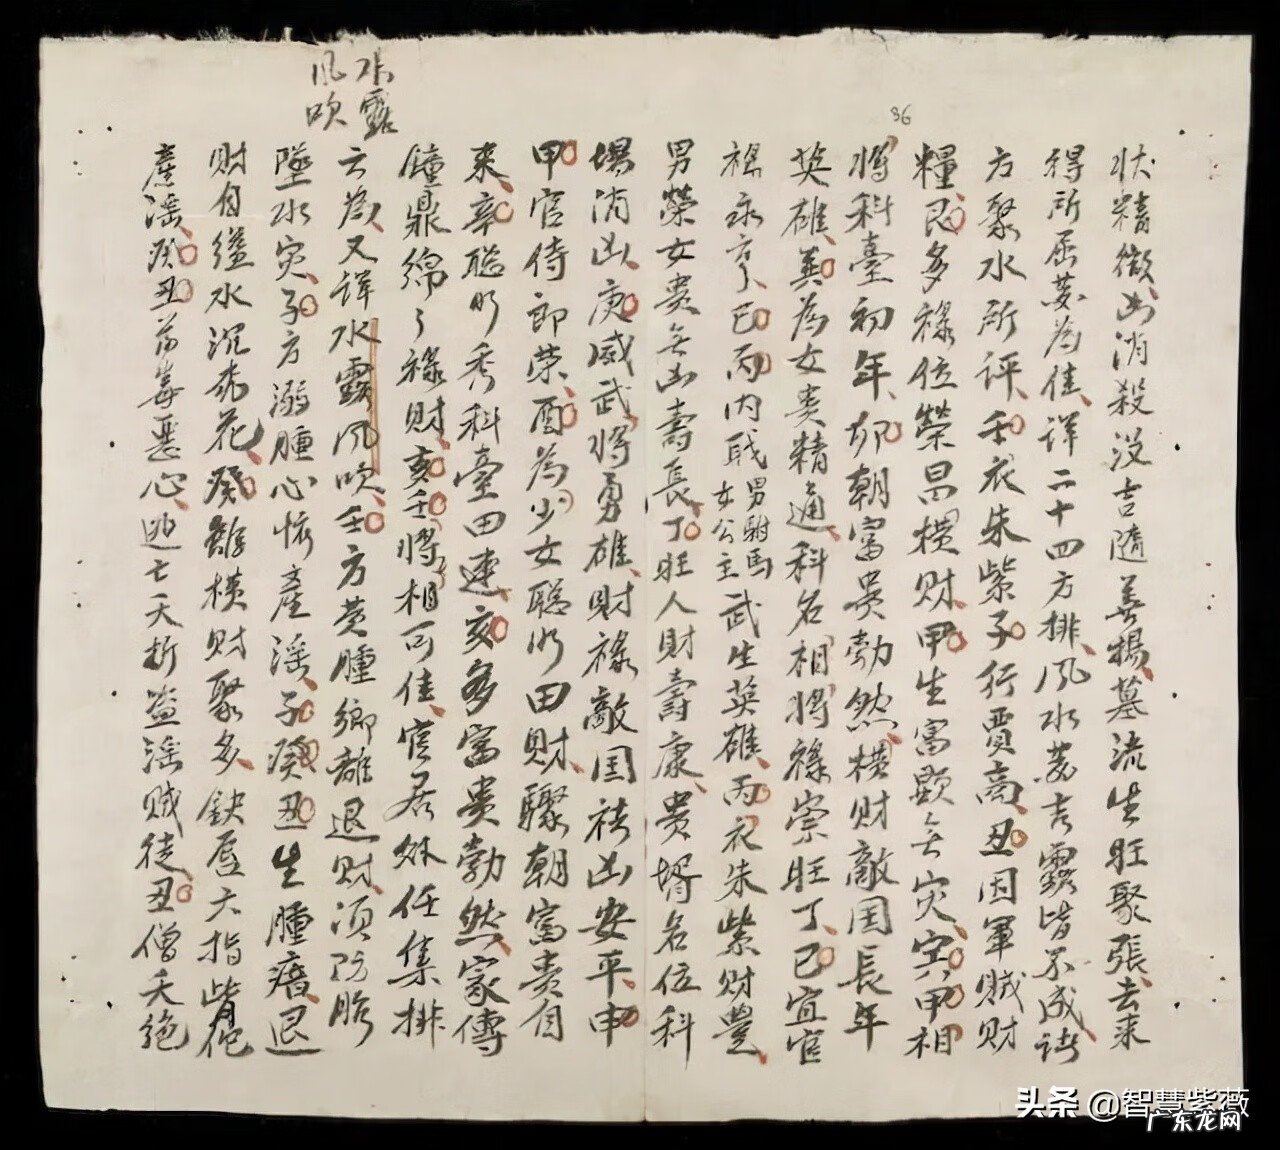 水露
風吹
36
状精微凶消殺没吉隨善揚墓流生旺聚張去来
得所屈茘為佳詳二十四方排風水茘吉露皆不成訣
方聚水所評壬衣朱紫子行賈高丑因軍賊財
糧艮多祿位榮昌横財甲生富顯無灾寅甲相
將科臺初年卯朝富贵勃然横財敵国長年
英雄巽為女贵精通科名相將祿崇旺丁巳宜官
祿永亨巳丙内戝男駙馬女公主武生英雄丙衣朱紫財豐
男榮女贵無凶壽長丁旺人財壽康贵壻名位科
場消凶庚威武將勇雄財祿敵国祛凶安平申
甲官侍郎荣酉為少女聪明田財驟朝富贵自
来辛聪明秀科臺田連亥多富贵勃然家傳
鐘鼎綿々祿財亥壬將相可佳官居 任集排
云為又詳水露風吹壬方黄腫鄉離退財須防
墜水灾子方溺腫心 產淫子癸丑生腫瘡退
財自縊水沉 花癸離横財聚多缺唇六指背佗
產淫癸丑 毒惡心逃亡夭折盗淫贼徒丑僧夭絕
头条 @智慧紫薇
广东龙网